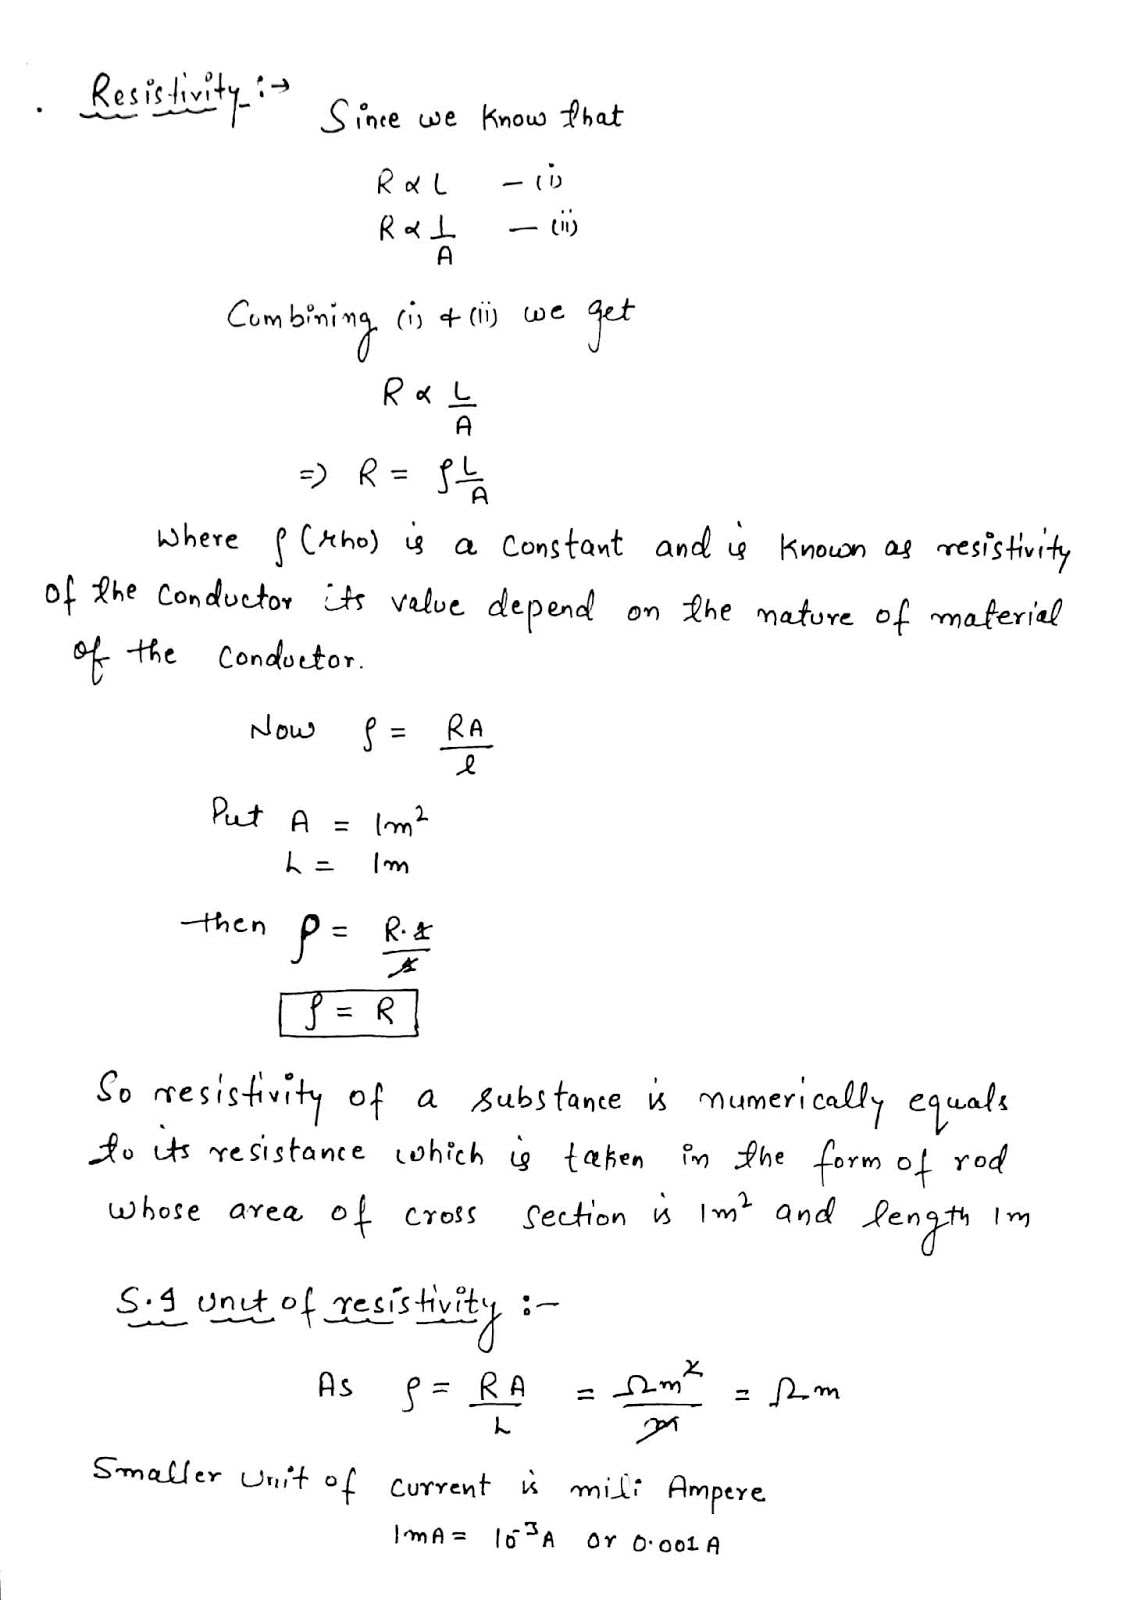 . Resistivity :→
Since we know that
R ∝ L — (i)
R ∝ 1/A — (ii)
Combining (i) & (ii) we get
R ∝ L/A
=> R = ρL/A
where ρ (rho) is a constant and is known as resistivity
of the conductor its value depend on the nature of material
of the conductor.
Now ρ = RA/l
Put A = 1m²
L = 1m
then ρ = R.1/1
ρ = R
So resistivity of a substance is numerically equals
to its resistance which is taken in the form of rod
whose area of cross section is 1m² and length 1m
S.I unit of resistivity :-
As ρ = RA/L = Ωm²/m = Ωm
Smaller unit of current is mili Ampere
1mA = 10⁻³A or 0.001A